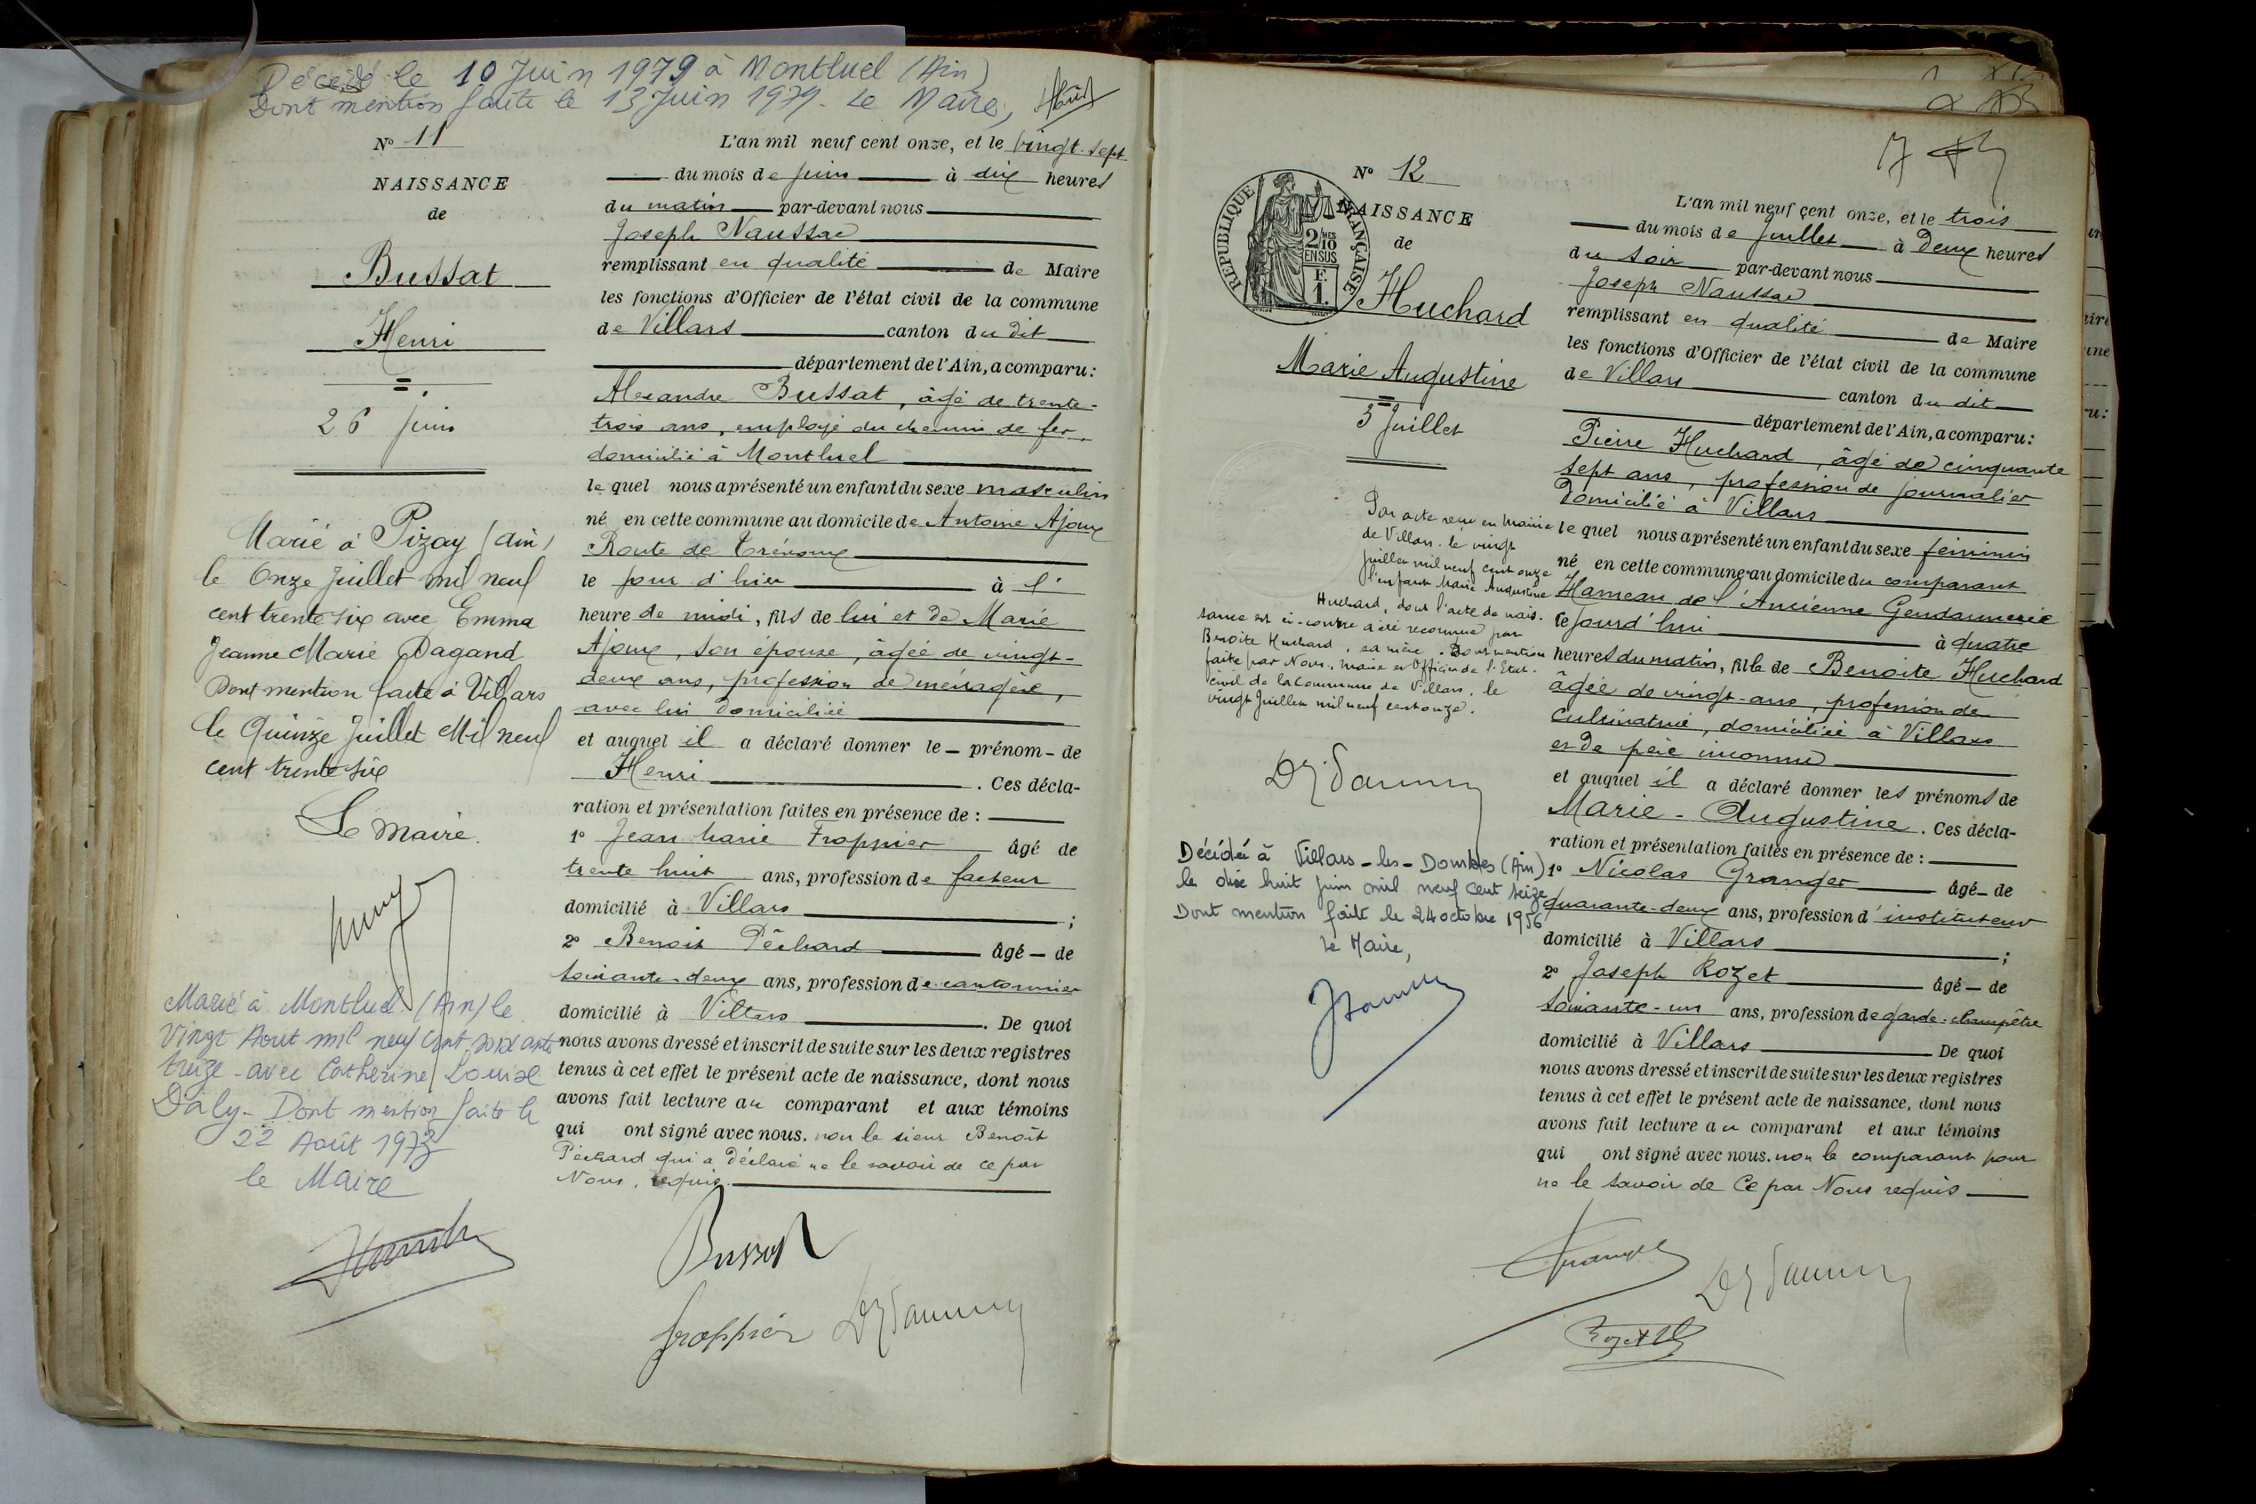 Décédé le 10 Juin 1979 à Montluel (Ain)
Dont mention faite le 13 Juin 1979. Le Maire,
N° 11
NAISSANCE
de
Bussat
Henri
26 Juin
Marié à Pizay (Ain)
le Onze Juillet mil neuf
cent trente six avec Emma
Jeanne Marie Dagand
Dont mention faite à Villars
le Quinze Juillet Mil neuf
cent trente six
Le Maire.
Marié à Montluel (Ain) le
Vingt Aout mil neuf cent soixante
treize avec Catherine Louise
Daly - Dont mention faite le
22 Août 1973
le Maire
L'an mil neuf cent onze, et le vingt-sept
du mois de Juin à dix heures
du matin par-devant nous
Joseph Naussac
remplissant en qualité de Maire
les fonctions d'Officier de l'état civil de la commune
de Villars canton du dit
département de l'Ain, a comparu:
Alexandre Bussat, âgé de trente-
trois ans, employé du chemin de fer,
domicilié à Montluel
le quel nous a présenté un enfant du sexe masculin
né en cette commune au domicile de Antoine Ajoux
Route de Trévoux
le jour d'hier à l'
heure de midi, fils de lui et de Marie
Ajoux, son épouse, âgée de vingt-
deux ans, profession de ménagère,
avec lui domiciliée
et auquel il a déclaré donner le - prénom - de
Henri. Ces décla-
ration et présentation faites en présence de :
1° Jean Marie Froppier âgé de
trente huit ans, profession de facteur
domicilié à Villars ;
2° Benoit Péchard âgé - de
soixante-deux ans, profession de cantonnier
domicilié à Villars. De quoi
nous avons dressé et inscrit de suite sur les deux registres
tenus à cet effet le présent acte de naissance, dont nous
avons fait lecture au comparant et aux témoins
qui ont signé avec nous. non le sieur Benoît
Péchard qui a déclaré ne le savoir de ce par
Nous, requis.
Bussat
Froppier
N° 12
NAISSANCE
de
REPUBLIQUE FRANÇAISE
2/10 MES
EN SUS
F.
1.
Huchard
Marie Augustine
3 Juillet
Par acte reçu en Mairie
de Villars. le vingt
Juillet mil neuf cent onze
l'enfant Marie Augustine
Huchard, dont l'acte de nais-
sance est ci-contre a été reconnue par
Benoite Huchard, sa mère. Dont mention
faite par Nous, Maire et Officier de l'Etat-
civil de la Commune de Villars, le
vingt Juillet mil neuf cent onze.
Décédée à Villars-les-Dombes (Ain)
le dix huit juin mil neuf cent seize
Dont mention faite le 24 octobre 1956
Le Maire,
L'an mil neuf cent onze, et le trois
du mois de Juillet à Deux heures
du soir par-devant nous
Joseph Naussac
remplissant en qualité de Maire
les fonctions d'Officier de l'état civil de la commune
de Villars canton du dit
département de l'Ain, a comparu:
Pierre Huchard, âgé de cinquante
sept ans, profession de journalier
Domicilié à Villars
le quel nous a présenté un enfant du sexe féminin
né en cette commune au domicile du comparant
Hameau de l'Ancienne Gendarmerie
Ce jourd'hui à quatre
heures du matin, fille de Benoite Huchard
âgée de vingt-ans, profession de
Cultivatrice, domiciliée à Villars
et de père inconnu
et auquel il a déclaré donner les prénoms de
Marie - Augustine. Ces décla-
ration et présentation faites en présence de :
1° Nicolas Granger âgé - de
quarante-deux ans, profession d'instituteur
domicilié à Villars ;
2° Joseph Rozet âgé - de
soixante-un ans, profession de garde-champêtre
domicilié à Villars De quoi
nous avons dressé et inscrit de suite sur les deux registres
tenus à cet effet le présent acte de naissance, dont nous
avons fait lecture au comparant et aux témoins
qui ont signé avec nous. non le comparant pour
ne le savoir de Ce par Nous requis
Granger
Rozet